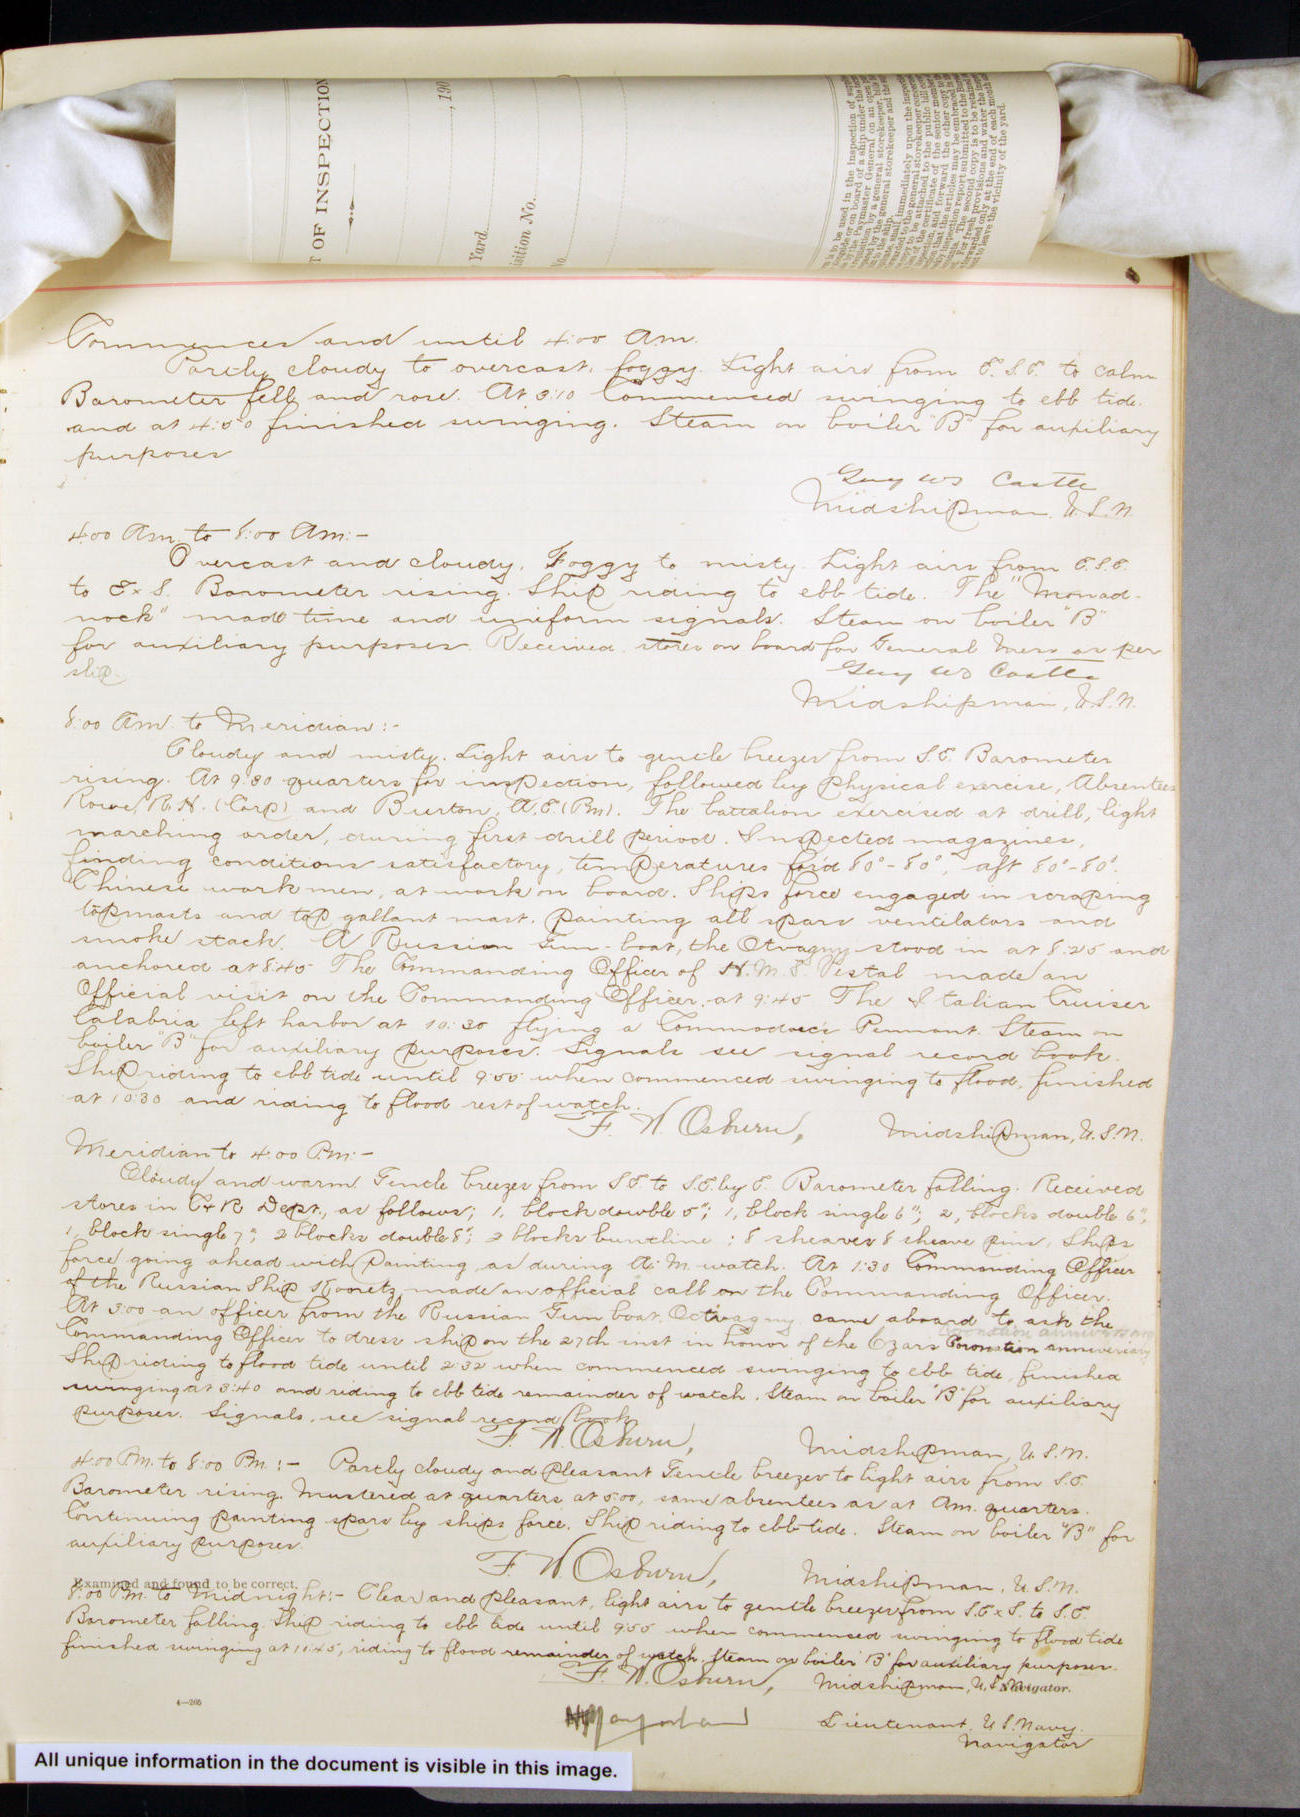 T OF INSPECTION
, 190
Yard
isition No.
No.
Commences and until 4:00 Am.
Partly cloudy to overcast, foggy. Light airs from E.S.E. to calm
Barometer fell and rose. At 3:10 Commenced swinging to ebb tide.
and at 4:00 finished swinging. Steam on boiler "B" for auxiliary
purposes
Guy WS Castle
Midshipman, U.S.N.
4:00 Am. to 8:00 Am:-
Overcast and cloudy, Foggy to misty. Light airs from E.S.E.
to E x S. Barometer rising. Ship riding to ebb tide. The "Monad-
nock" made time and uniform signals. Steam on boiler "B"
for auxiliary purposes. Received stores on board for General Mess as per
slip.
Guy WS Castle
Midshipman, U.S.N.
8:00 Am to Meridian:-
Cloudy and misty. Light airs to gentle breezes from S.E. Barometer
rising. At 9:30 quarters for inspection, followed by physical exercise, Absentees
Rowe, R.H. (Corp) and Burton, A.E. (Pm). The battalion exercised at drill, light
marching order, during first drill period. Inspected magazines,
finding conditions satisfactory, temperatures for'd 80°-80°, aft 80°-80°.
Chinese workmen, at work on board. Ships force engaged in scraping
topmasts and top gallant mast, painting all spars ventilators and
smoke stack. A Russian Gun-boat, the Otvagny stood in at 8:25 and
anchored at 8:45 The Commanding Officer of H.M.S. Vestal made an
Official visit on the Commanding Officer, at 9:45 The Italian Cruiser
Calabria left harbor at 10:30 flying a Commodore's Pennant. Steam on
boiler "B" for auxiliary purposes. Signals see signal record book.
Ship riding to ebb tide until 9:55 when commenced swinging to flood, finished
at 10:30 and riding to flood rest of watch.
F. W. Osburn, Midshipman, U.S.N.
Meridian to 4:00 P.M:-
Cloudy and warm Gentle breezes from S.E. to S.E. by E. Barometer falling. Received
stores in C & R Dept., as follows; 1, block double 5"; 1, block single 6"; 2, blocks double 6";
1, block single 7"; 2 blocks double 8"; 2 blocks buntline; 8 sheaves 8 sheave pins, Ships
force going ahead with painting as during A.M. watch. At 1:30 Commanding Officer
of the Russian Ship Kooretz, made an official call on the Commanding Officer.
At 3:00 an officer from the Russian Gun boat Octvagny came aboard to ask the
Commanding Officer to dress ship on the 27th inst in honor of the Czars Coronation anniversary
Ship riding to flood tide until 2:32 when commenced swinging to ebb tide, finished
swinging at 3:40 and riding to ebb tide remainder of watch. Steam on boiler "B" for auxiliary
purposes. Signals, see signal record book.
F. W. Osburn, Midshipman, U.S.N.
4:00 P.M. to 8:00 P.M.:- Partly cloudy and pleasant Gentle breezes to light airs from S.E.
Barometer rising. Mustered at quarters at 5:00, same absentees as at Am. quarters.
Continuing painting spars by ships force. Ship riding to ebb tide. Steam on boiler "B" for
auxiliary purposes.
F. W. Osburn, Midshipman, U.S.N.
Examined and found to be correct.
8:00 P.M. to Midnight:- Clear and pleasant, light airs to gentle breezes from S.E x S. to S.E.
Barometer falling. Ship riding to ebb tide until 9:55 when commenced swinging to flood tide
finished swinging at 10:45, riding to flood remainder of watch. Steam on boiler "B" for auxiliary purposes.
F. W. Osburn, Midshipman, U.S.N.
Navigator.
4—205
Lieutenant, U.S. Navy.
Navigator
All unique information in the document is visible in this image.